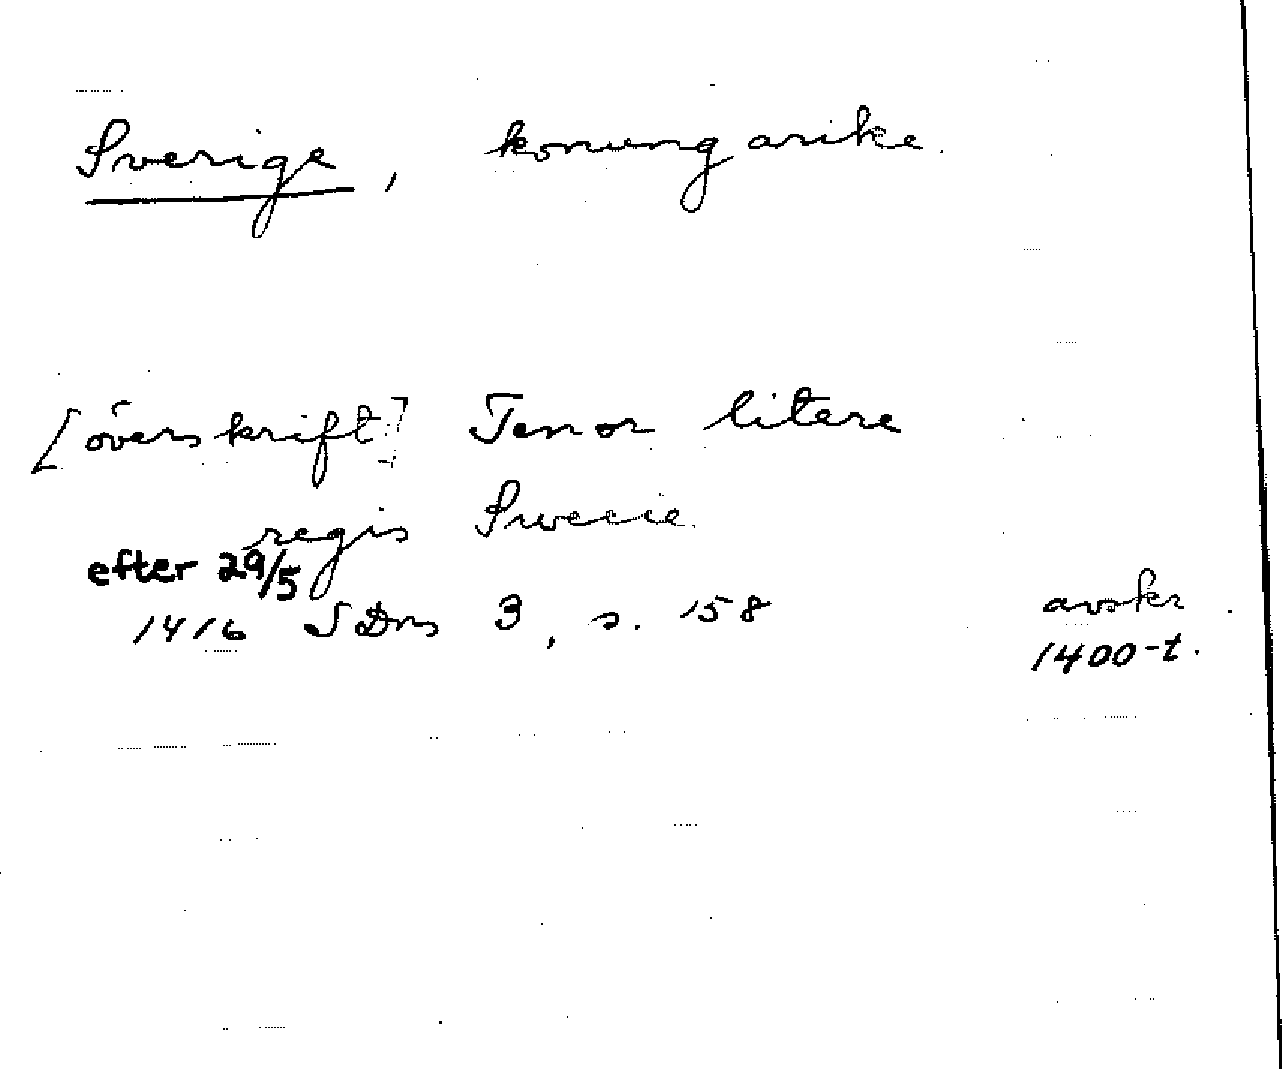 Sverige, konungarike
[överskrift] Tenor litere
regis Swecie
efter 29/5
1416 SDns 3, s. 158 avskr
1400-t.